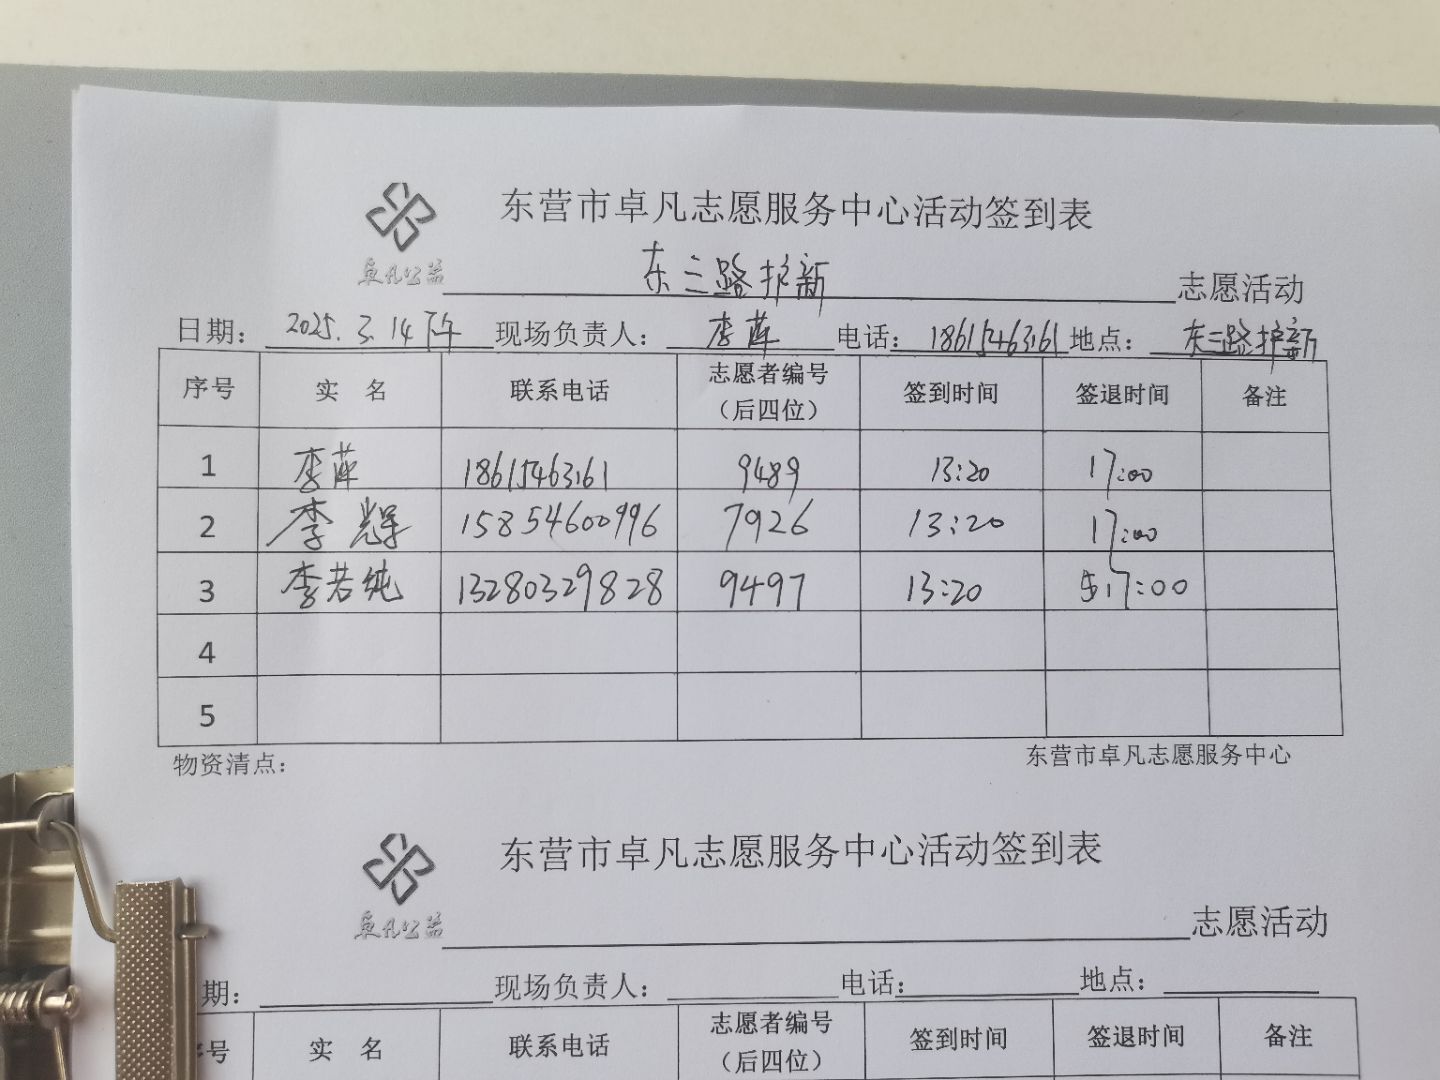 东营市卓凡志愿服务中心活动签到表
卓凡公益
东三路护新 志愿活动
日期: 2025.3.14下午 现场负责人: 李萍 电话: 18615463161 地点: 东三路护新
序号 实 名 联系电话 志愿者编号(后四位) 签到时间 签退时间 备注
1 李萍 18615463161 9489 13:20 17:00
2 李辉 15854600996 7926 13:20 17:00
3 李若纯 13280329828 9497 13:20 17:00
4
5
物资清点: 东营市卓凡志愿服务中心
东营市卓凡志愿服务中心活动签到表
卓凡公益
志愿活动
期: 现场负责人: 电话: 地点:
号 实 名 联系电话 志愿者编号(后四位) 签到时间 签退时间 备注